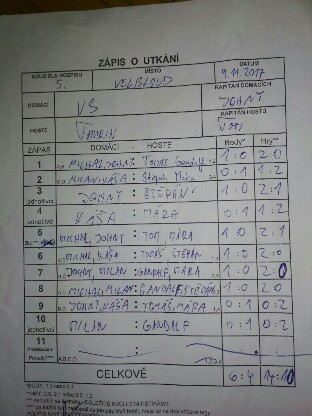 ZÁPIS O UTKÁNÍ
KOLO DLE ROZPISU MÍSTO DATUM
5. VELBLOUD 9.11.2017
DOMÁCÍ KAPITÁN DOMÁCÍCH
VS JOHNY
HOSTÉ KAPITÁN HOSTŮ
TOM
ZÁPAS DOMÁCÍ - HOSTÉ Body* Hry**
1 MICHAL, JOHNY : Tomáš, Gandalf 1:0 2:0
2 MILAN, KÁŠA : Štěpán, Mára 0:1 1:2
3 jednotlivci JOHNY : ŠTĚPÁN 1:0 2:1
4 jednotlivci KÁŠA : MÁRA 0:1 1:2
5 MICHAL, JOHNY : TOM, MÁRA 1:0 2:1
6 MICHAL, KÁŠA : TOMÁŠ, ŠTĚPÁN 1:0 2:0
7 JOHNY, MILAN : GANDALF, MÁRA 1:0 2:0
8 MICHAL, MILAN : GANDALF, ŠTĚPÁN 1:0 2:0
9 JOHNY, KÁŠA : TOMÁŠ, MÁRA 0:1 0:2
10 jednotlivci MILAN : GANDALF 0:1 0:2
11
Penalty*** A,B,C,D 1,2,3,4
CELKOVĚ 6:4 14:10
*BODY: 1:0 nebo 0:1
**HRY: 2:0, 2:1 nebo 0:2, 1:2